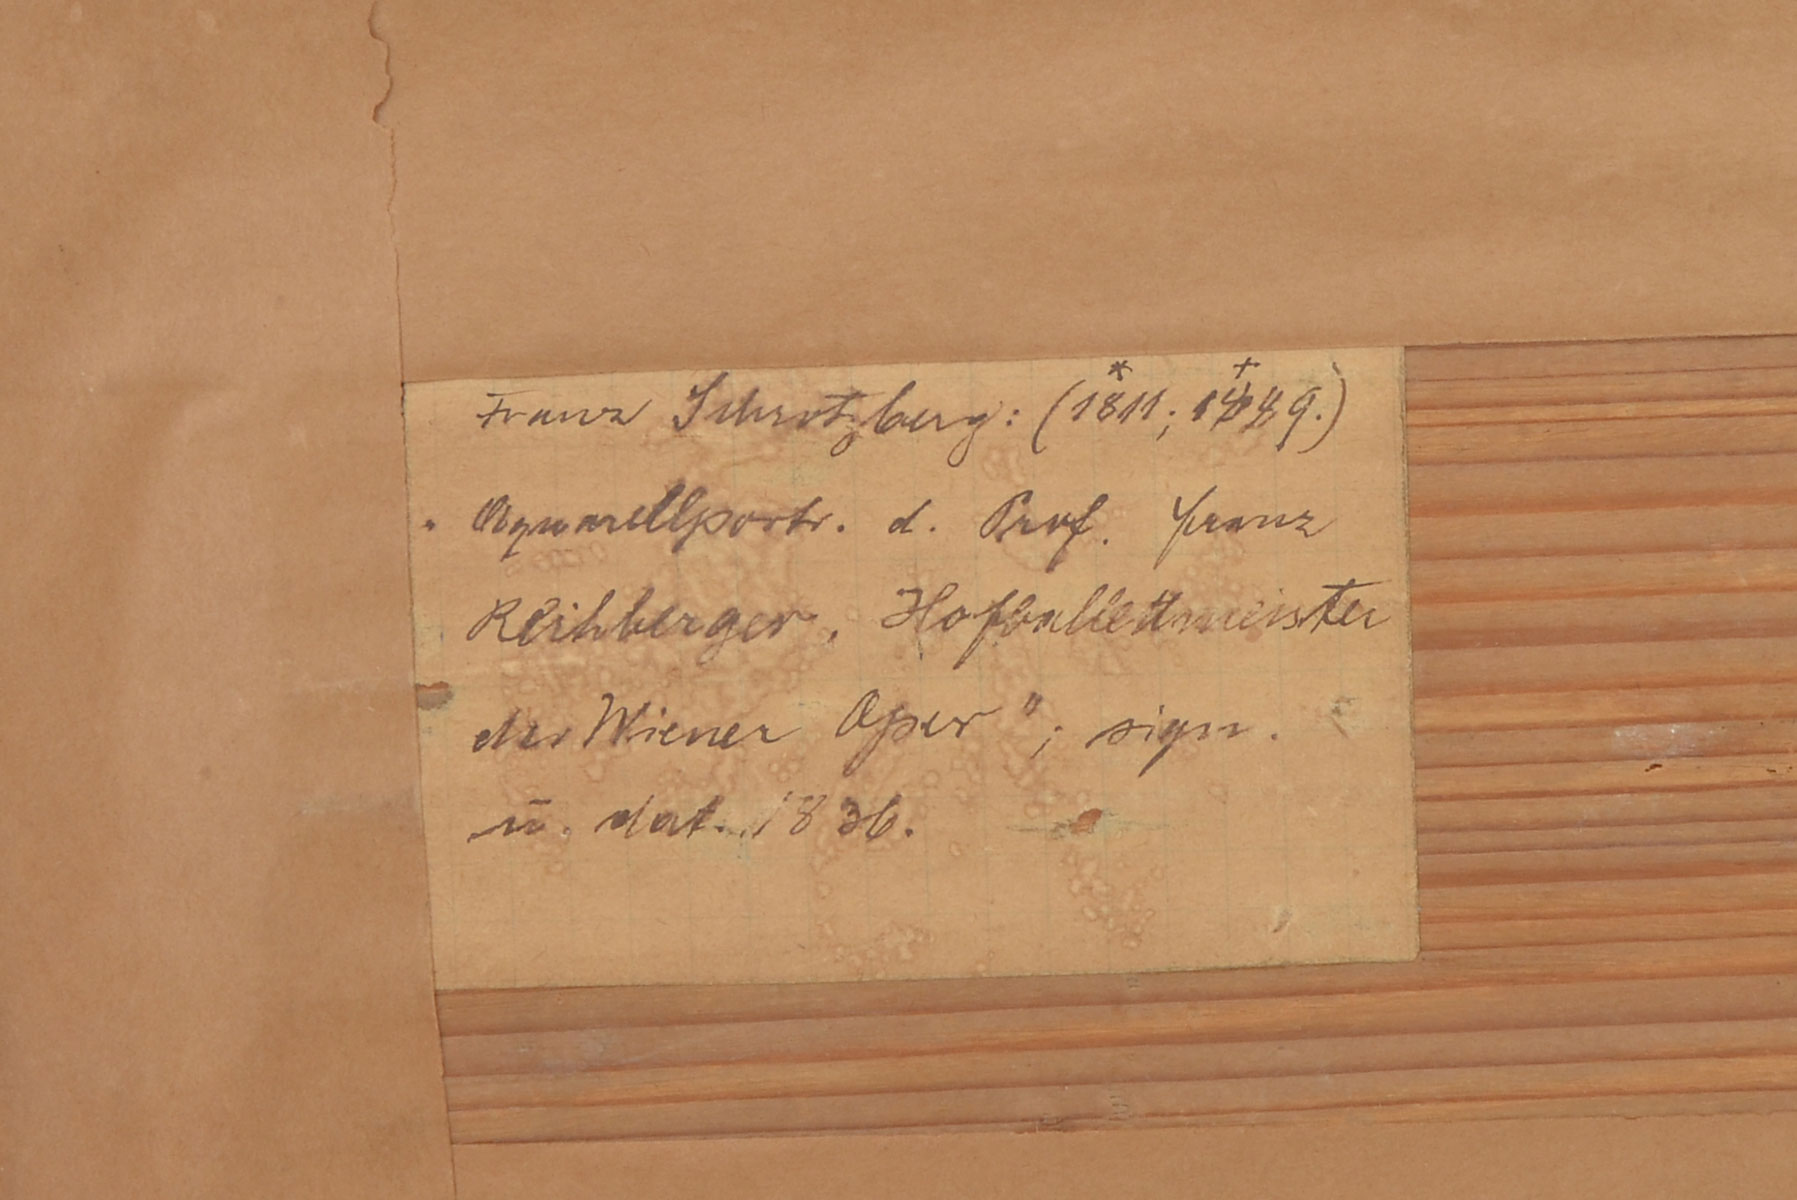 Franz Schrotzberg: (*1811; +1889.)
" Aquarellportr. d. Prof. Franz
Reihberger, Hofballettmeister
der Wiener Oper"; sign.
u. dat. 1836.